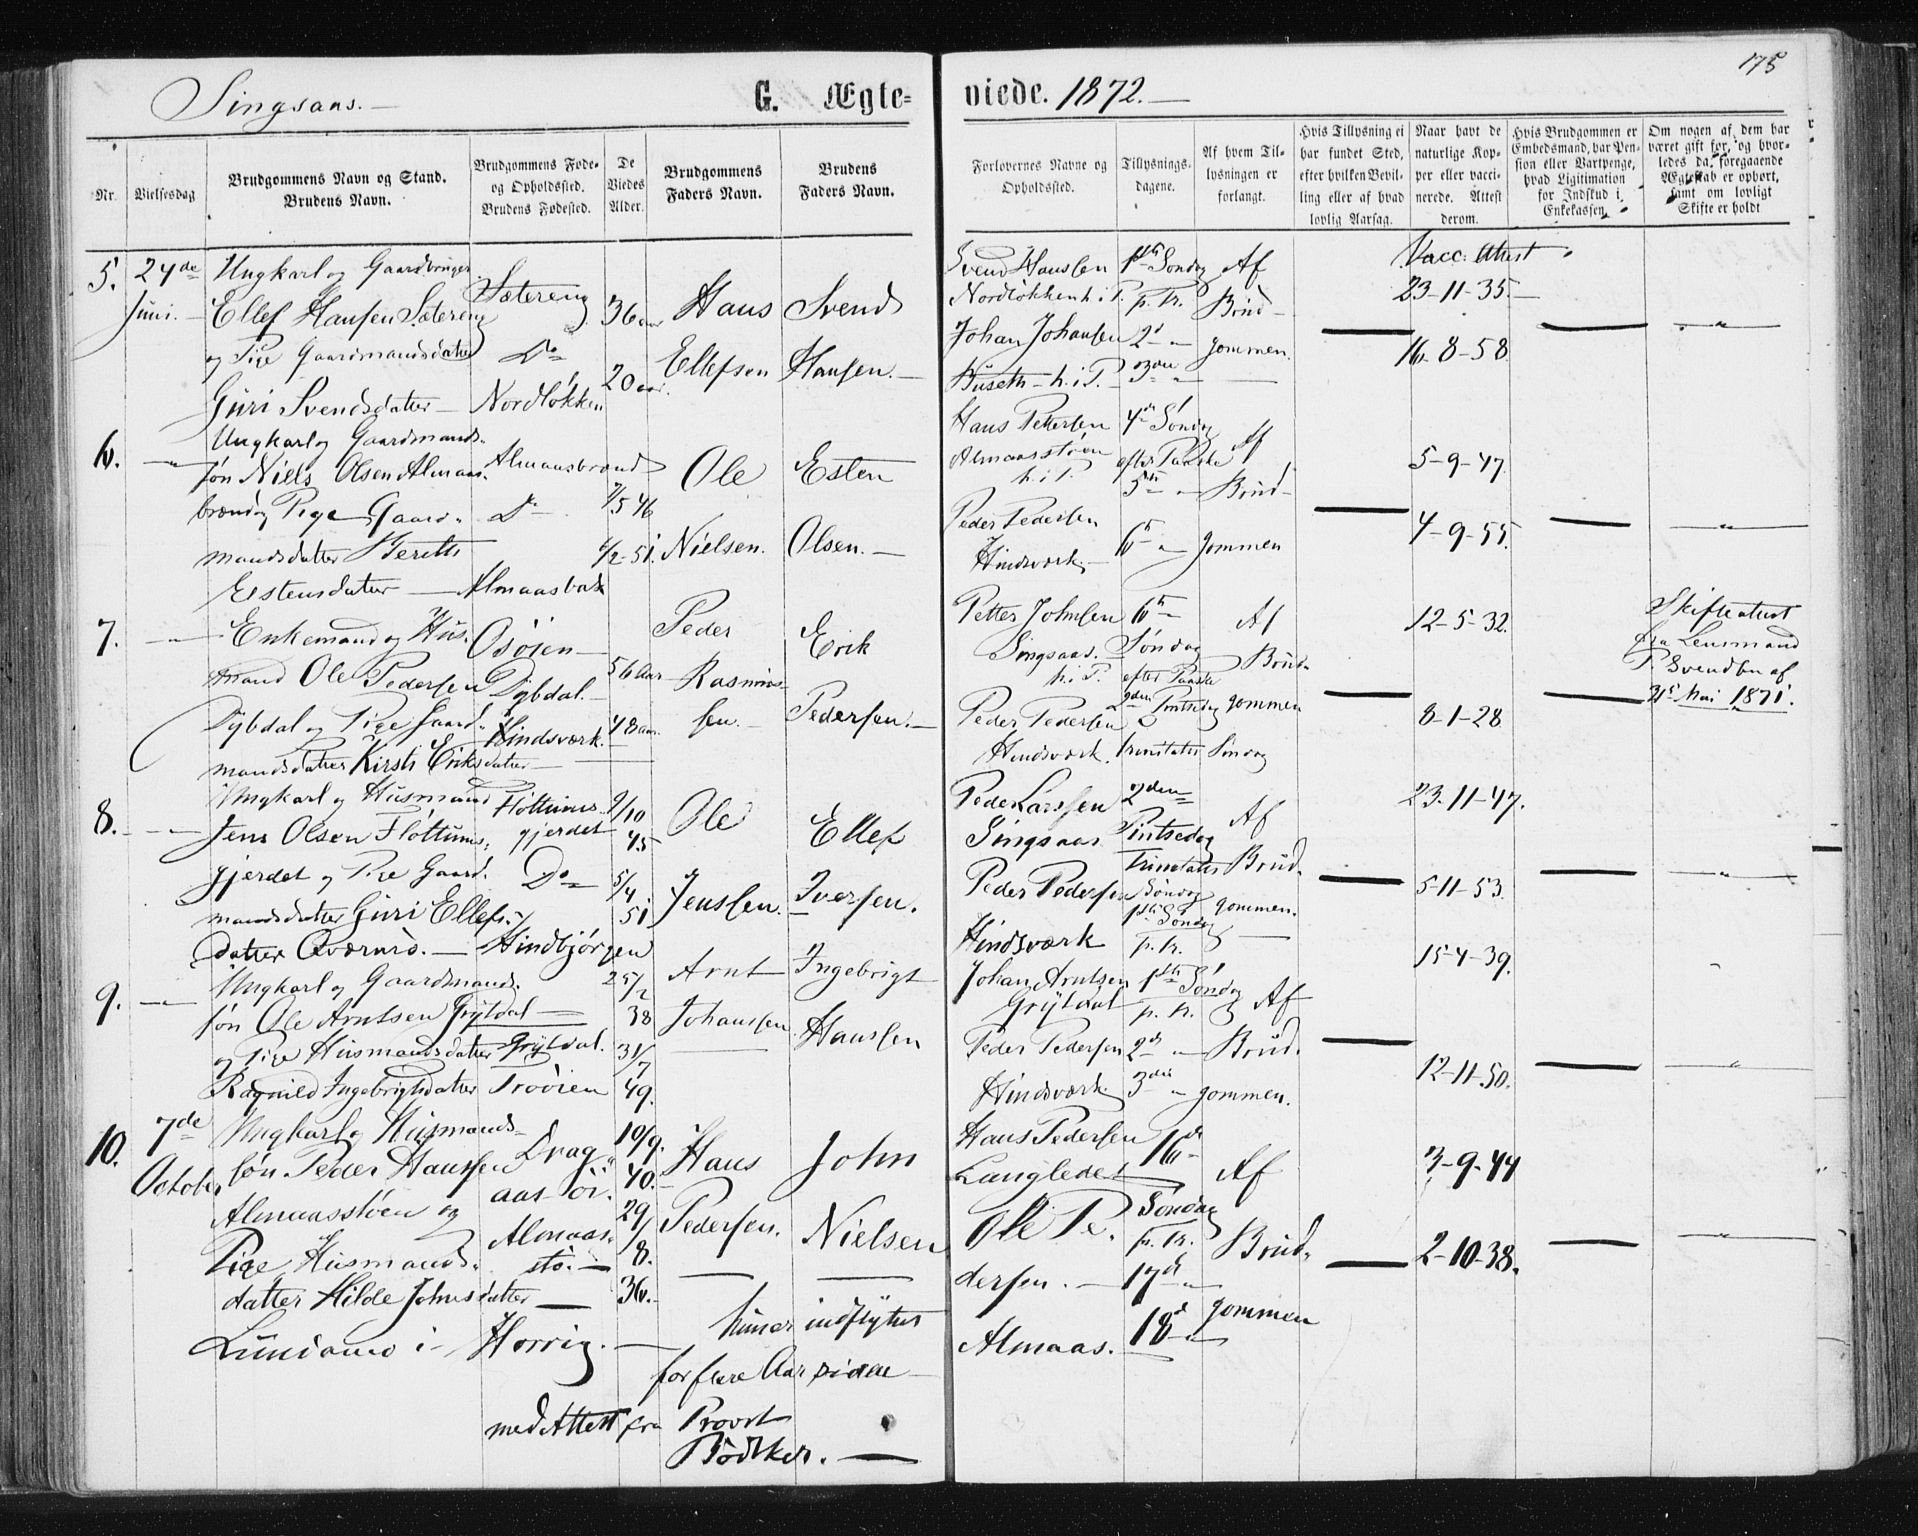 175
Singsaas. —
G. Ægte=
viede. 1872. —
Nr.
Vielsesdag
Brudgommens Navn og Stand.
Brudens Navn.
Brudgommens Føde=
og Opholdssted.
Brudens Fødested.
De
Viedes
Alder.
Brudgommens
Faders Navn.
Brudens
Faders Navn.
Forlovernes Navne og
Opholdssted.
Tillysnings=
dagene.
Af hvem Til=
lysningen er
forlangt.
Hvis Tillysning ei
har fundet Sted,
efter hvilken Bevil=
ling eller af hvad
lovlig Aarsag.
Naar havt de
naturlige Kop=
per eller vacci=
nerede. Attest
derom.
Hvis Brudgommen er
Embedsmand, har Pen=
sion eller Vartpenge,
hvad Ligitimation
for Indskud i
Enkekassen.
Om nogen af dem har
været gift før, og hvor=
ledes da foregaaende
Ægteskab er ophørt,
samt om lovligt
Skifte er holdt
5.
24de
Juni. —
Ungkarl og Gaardbruger
Ellef Hansen Sætereng
og Pige Gaardmandsdatter
Guri Svendsdatter —
Sætereng
Do
Nordløkken
36 aar
20 aar.
Hans
Ellefsen
Svend
Hansen. —
Svend Hansen
Nordløkken h. i P.
Johan Johansen
Huseth — h. i P. —
1ste Søndag
p. Tr.
2d — "
3die "
Af
Brud-
gommen.
Vacc. Attest
23-11-35. —
16-8-58
—
—
"
6.
— " —
Ungkarl og Gaardmands-
søn Niels Olsen Almaas-
brænd og Pige Gaard-
mandsdatter Berette
Estensdatter —
Almaasbrænd
Do
Almaasbak
7/5 46
4/2-51.
Ole
Nielsen.
Esten
Olsen. —
Hans Pettersen
Almaasstøen
h. i P.
Peder Pedersen
Hindsværk —
4de Søndag
efter Paaske
5te — "
6te — "
Af
Brud-
gommen
5-9-47.
4-9-55.
—
—
"
7.
— " —
Enkemand og Hus-
mand Ole Pedersen
Dybdal og Pige Gaard-
mandsdatter Kirsti Eriksdatter —
Osøien —
Dybdal. —
Hindsværk.
56 aar
48 aar.
Peder
Rasmus-
sen. —
Erik
Pedersen. —
Petter Johnsen
Singsaas.
h. i P.
Peder Pedersen
Hindsværk.
6te
Søndag
efter Paaske
2den Pintsedag
Trinitatis Søndag
Af
Brud-
gommen
12-5-32.
8-1-28
—
—
Skifteattest
fra Lensmand
P. Svendsen af
31te Mai 1871.
8.
— " —
Ungkarl og Husmand
Jens Olsen Fløttums-
gjerdet og Pige Gaard-
mandsdatter Guri Ellefs-
datter Qværnrø. —
Fløttums-
gjerdet
Do
Hindbjørgen
9/10
45
5/4
51
Ole
Jenssen.
Ellef
Iversen.
Peder Larssen
Singsaas
Peder Pedersen
Hindsværk
2den
Pintsedag
Trinitatis
Søndag
1ste Søndag
p. Tr.
Af
Brud-
gommen.
23-11-47.
5-11-53.
—
—
"
9.
— " —
Ungkarl og Gaardmands-
søn Ole Arntsen Grytdal —
og Pige Husmandsdatter
Ragnild Ingebrigtsdatter
Grytdal.
Troøien
25/2
38
31/7
49.
Arnt
Johansen
Ingebrigt
Hanssen
Johan Arntsen
Grytdal
Peder Pedersen
Hindsværk
1ste Søndag
p. Tr.
2d — "
3die "
Af
Brud-
gommen.
15-4-39.
12-11-50.
—
—
"
10.
7de
October
Ungkarl og Husmands-
søn Peder Hanssen
Almaasstøen og
Pige Husmands-
datter Hilde Johnsdatter —
Lundamo i Horrig. —
Drag-
aas-
Almaas-
stø. —
10/9.
40.
29/
8.
36. —
Hans
Pedersen.
John
Nielsen
hun er indflyttet
for flere Aar siden —
med Attest fra Provst
Bødtker. —
Hans Pedersen
Langledet
Ole Pe-
dersen. —
Almaas.
16de
Søndag
p. Tr.
17de "
18de "
Af
Brud-
gommen
3-9-44
2-10-38.
—
—
"